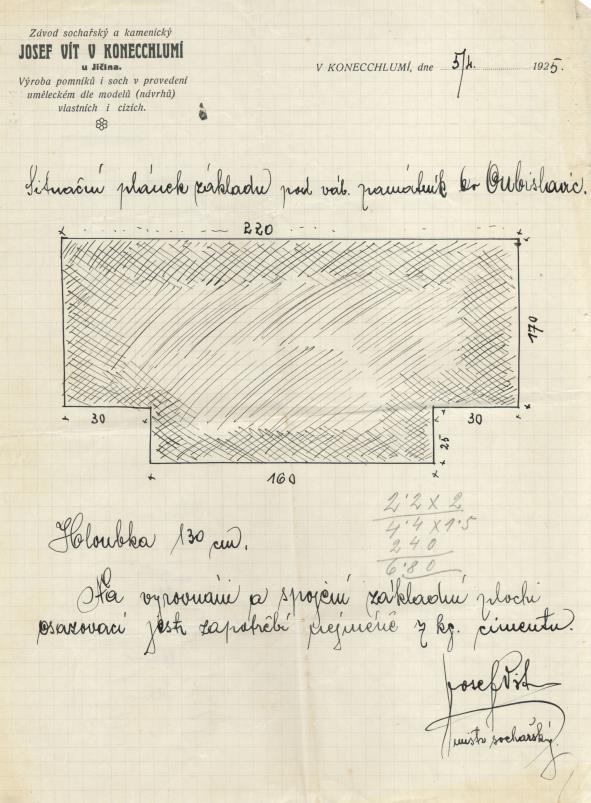 Závod sochařský a kamenický
JOSEF VÍT V KONECCHLUMÍ
u Jičína.
Výroba pomníků i soch v provedení
uměleckém dle modelů (návrhů)
vlastních i cizích.
V KONECCHLUMÍ, dne 5/4. 1925.
Situační plánek základu pod vál. památník do Oubislavic.
220
170
30
30
25
160
2·2 x 2
4·4 x 1·5
2 4 0
6·80
Hloubka 130 cm.
Na vyrovnání a spojení základní plochi
osazovací jest zapotřebí nejméně 7 kg. cimentu.
Josef Vít
mistr sochařský.